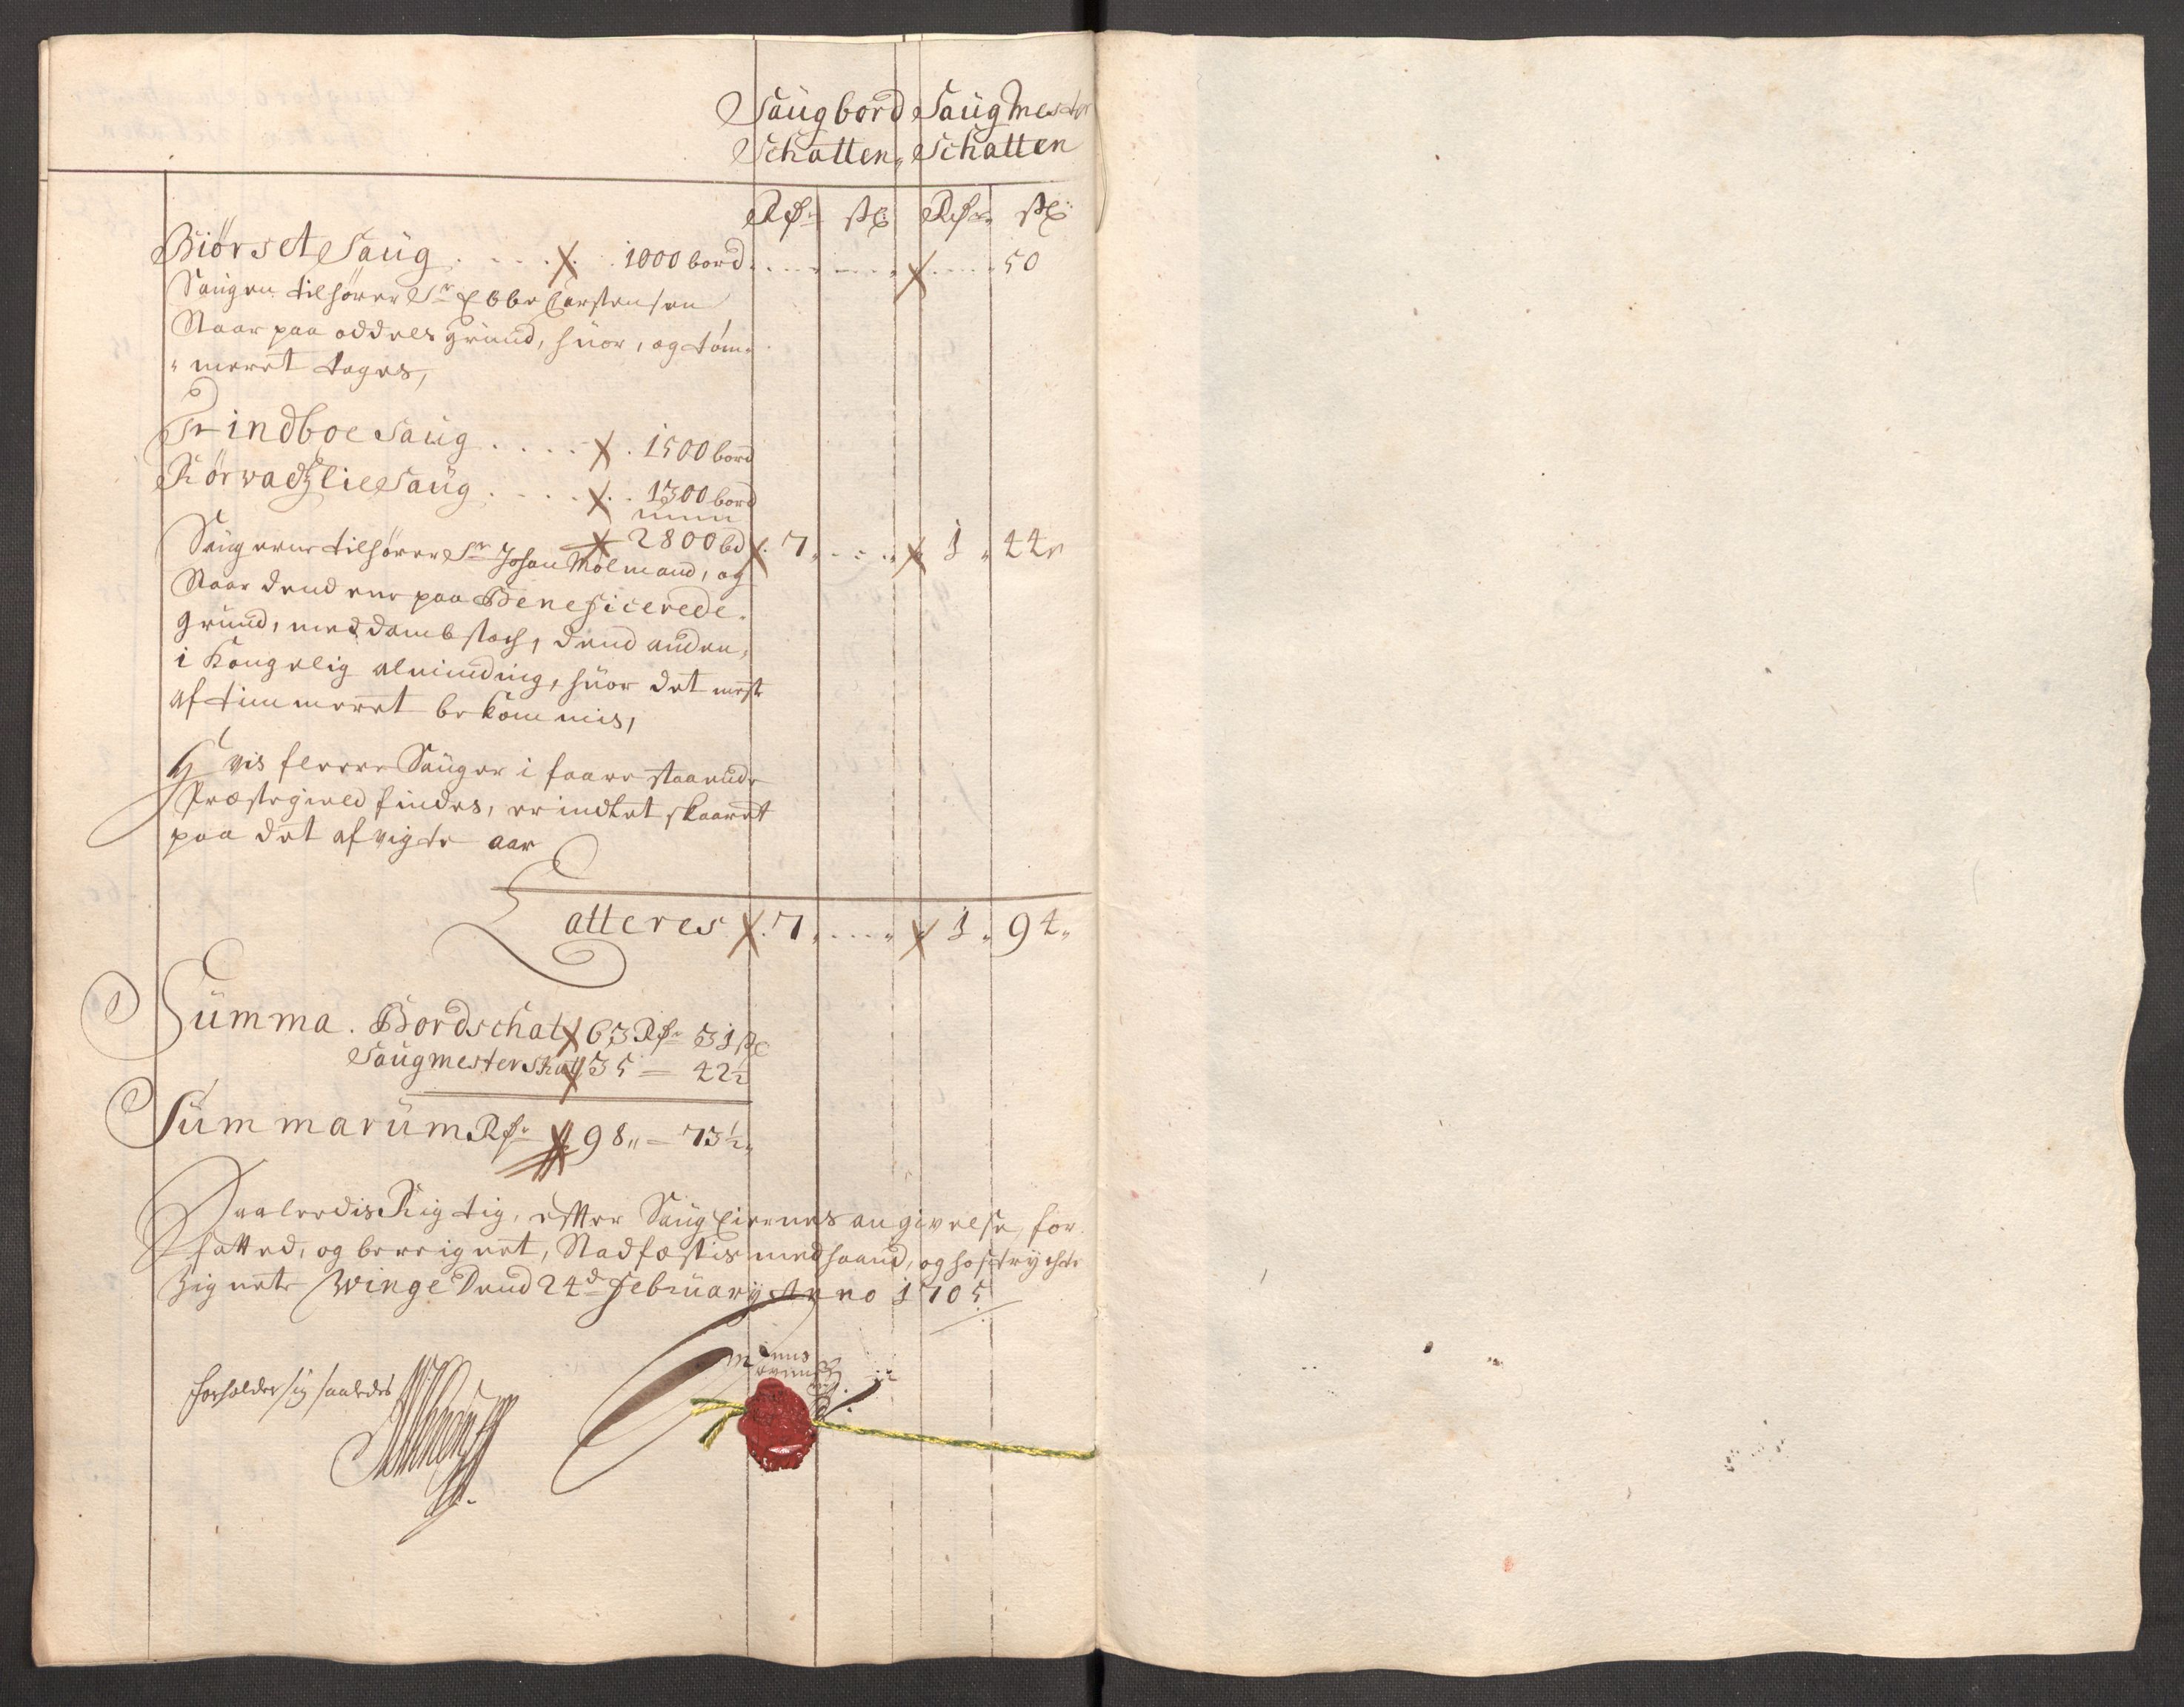 Saugbord Saugmester
Schatten„ Schatten
Rdr sk Rdr sk
Biørset Saug . . . . 1000 bord . . . . . . . 50
Saugen tilhører Sr Ebbe Carstensen
Staar paa oddels grund, huor, og tøm„
„meret tages,
Trindboe Saug . . . . . 1500 bord
Kørvadzlie Saug . . . . . 1300 bord
2800 bd 7 „ . . „ 1 „ 44„
Saugerne tilhører Sr Johan Molmand, og
Staar dend ene paa Beneficerede„
grund, med dambstoch, dend anden,
i Kongelig alminding, huor det meste
af timmeret bekommis,
Hvis flerre Sauger i faare staaende
Præstegield findes, er indtet skaaret
paa det afvigte aar
Latteres 7 „ . . . „ 1 „ 94„
Summa. Bordschat 63 Rdr 31 sk
Saugmesterskat 35 — 42½
Summarum Rdr 98„ — 73½„
Saaledis Rigtig, efter Saug Eiernes angivelse, for„
fatted, og beregnet, Stadfæstis med haand, og hostrychte
Zignete Winge Dend 24d February Anno 1705
forholder sig saaledes